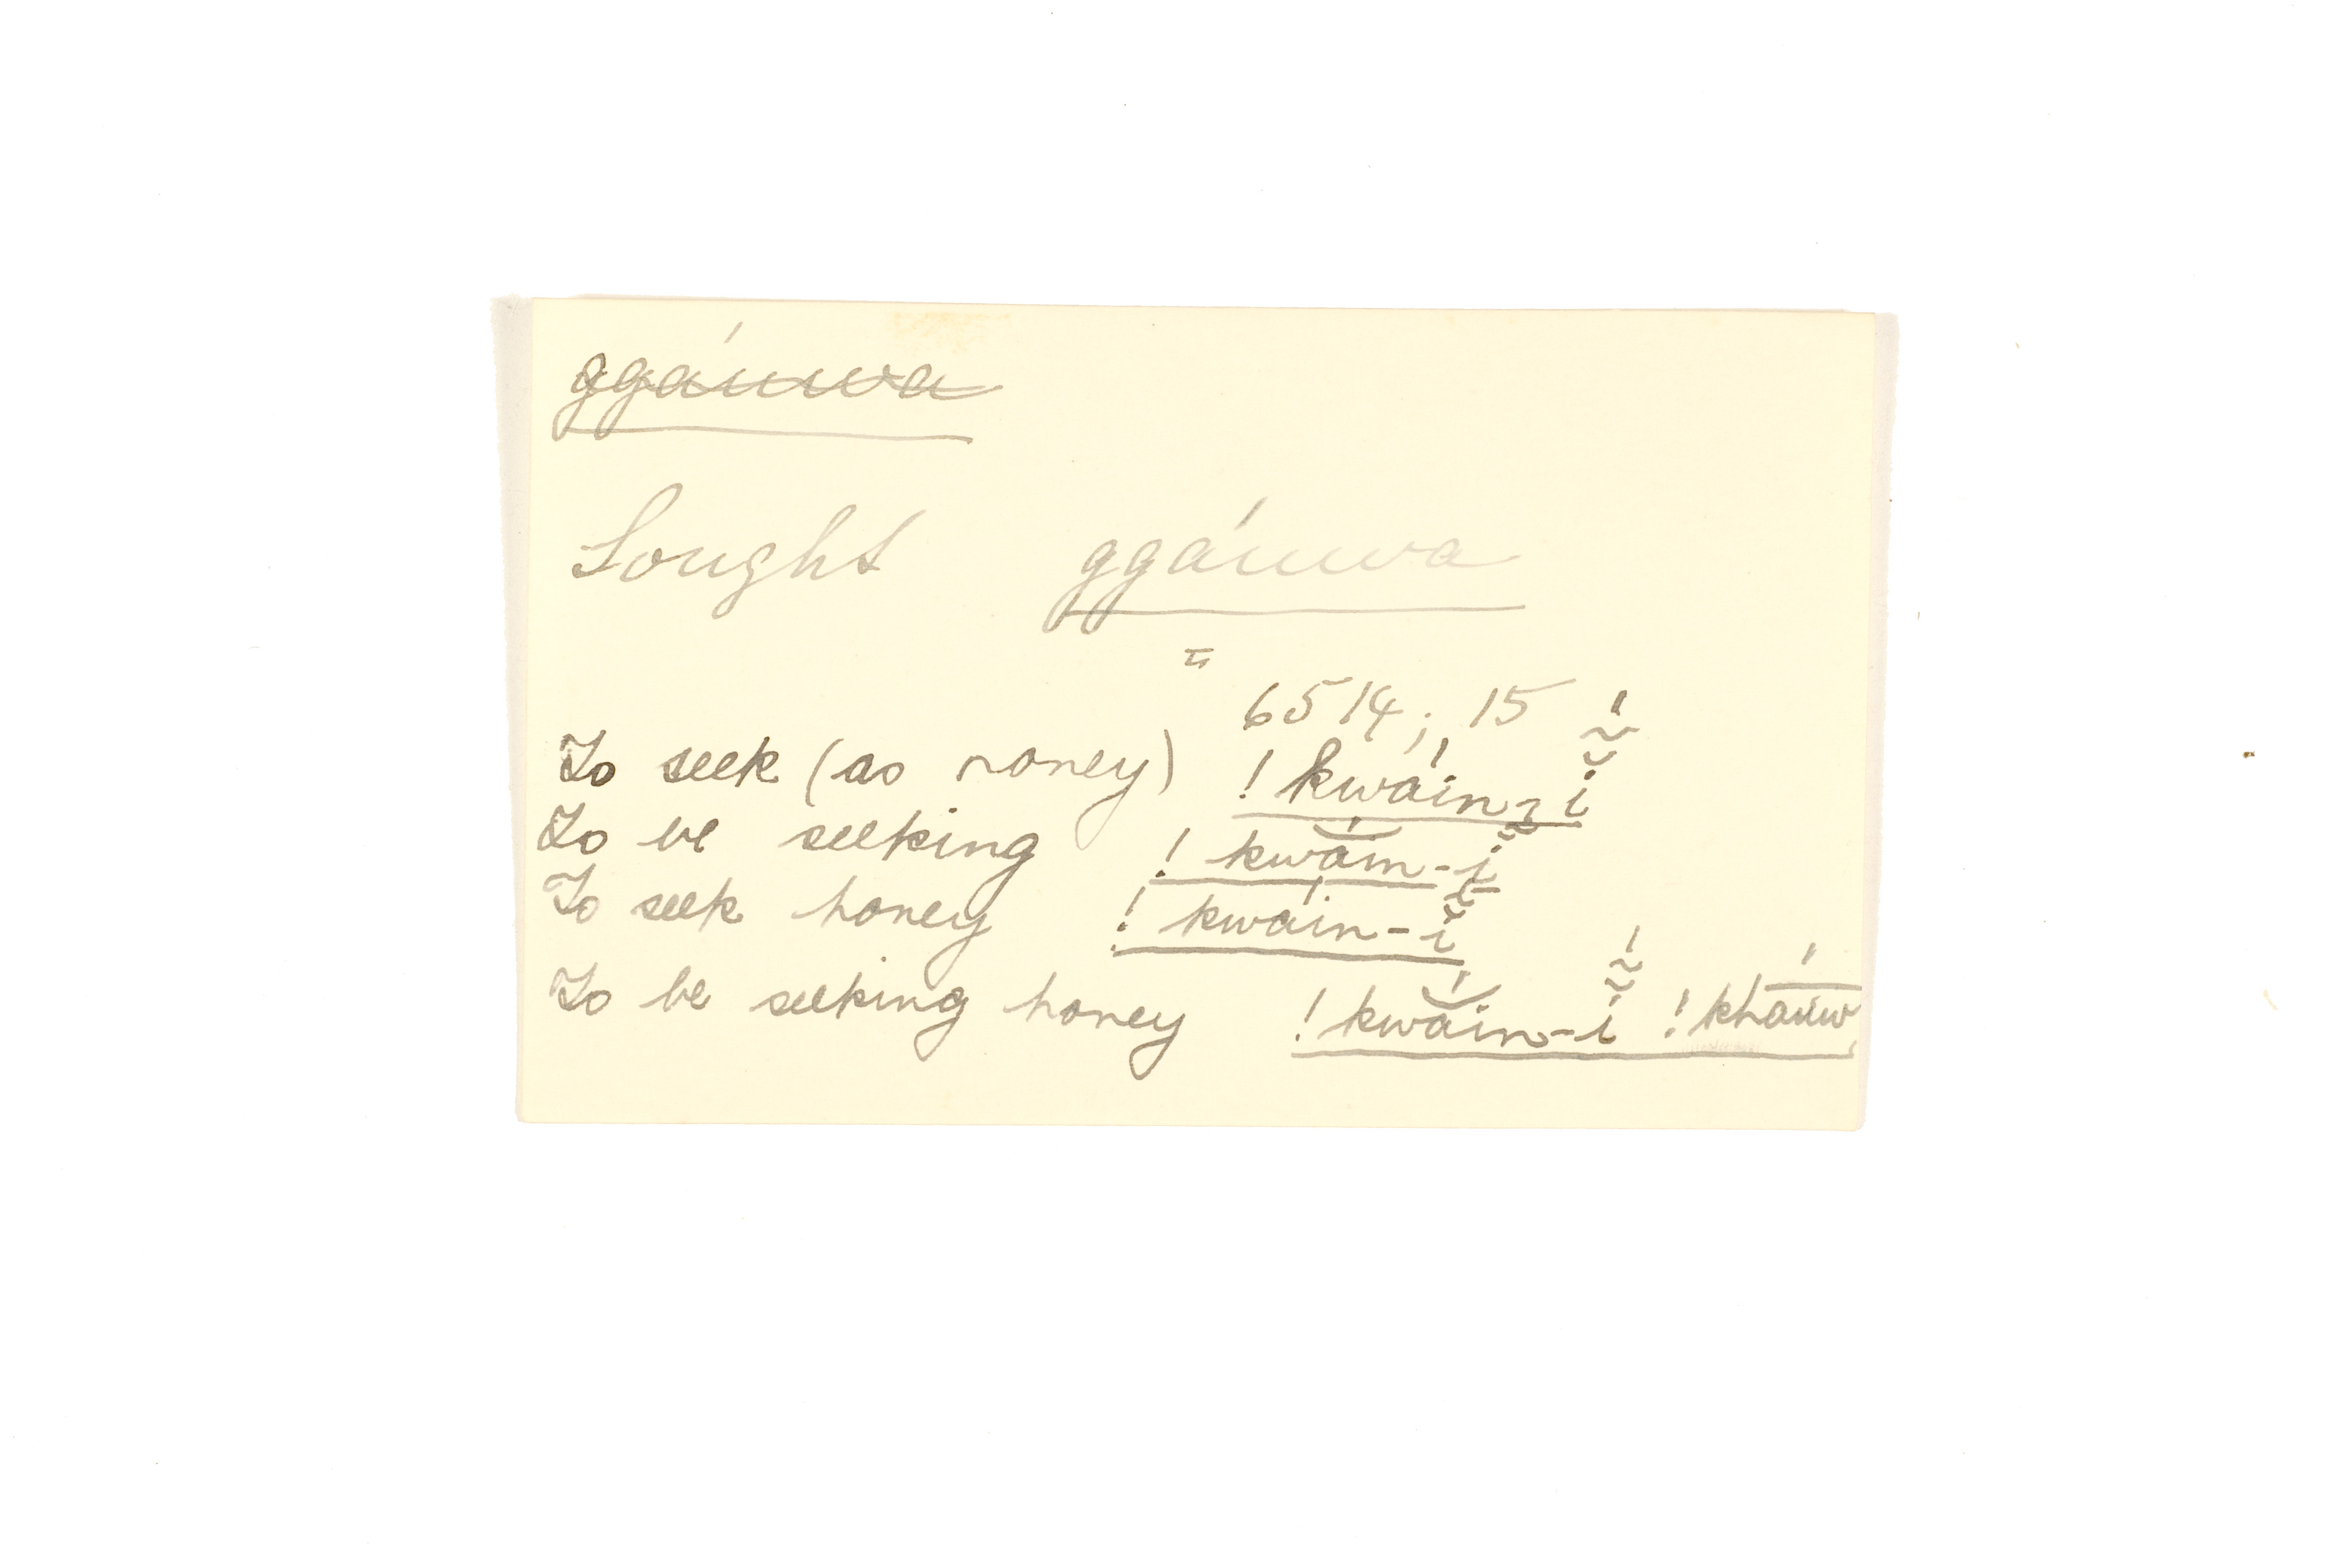 ggáuwa
Sought ggáuwa
=
6514; 15
To seek (as honey) !kwáin-ĩ́
To be seeking !kwā́in-ĩ
To seek honey !kwáin-ĩ
To be seeking honey !kwā́in-ĩ́ !kháuw